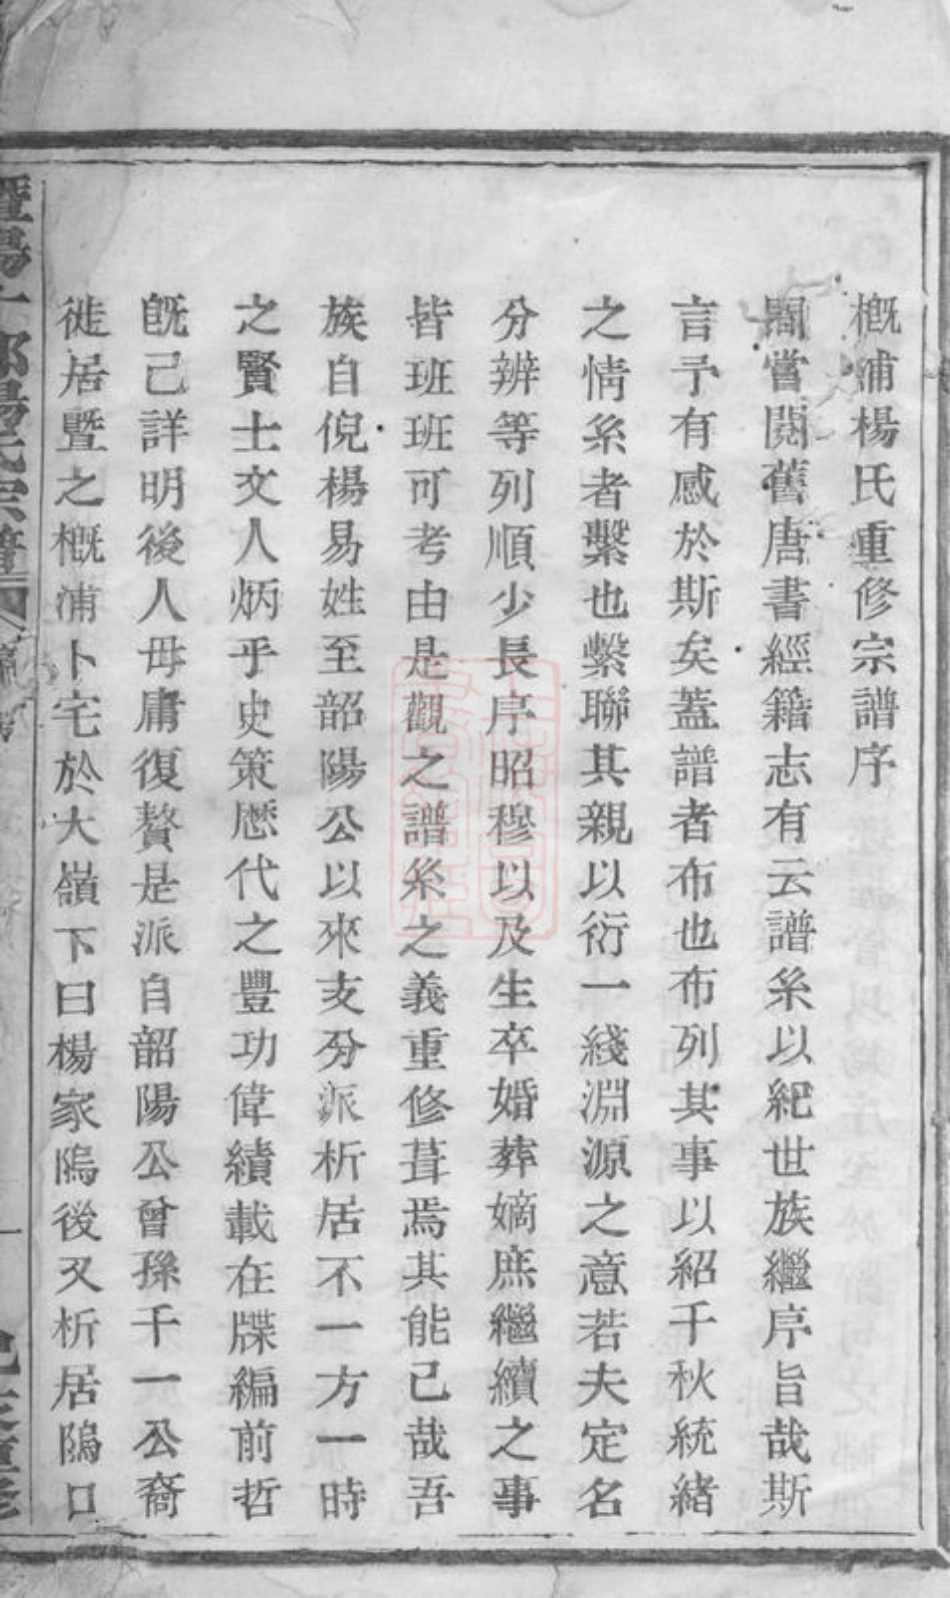 概浦楊氏重修宗譜序
閣嘗閱舊唐書經籍志有云譜系以紀世族繼序旨哉斯
言予有感於斯矣蓋譜者布也布列其事以紹千秋統緒
之情系者繫也繫聯其親以衍一綫淵源之意若夫定名
分辨等列順少長序昭穆以及生卒婚葬嫡庶繼續之事
皆班班可考由是觀之譜系之義重修葺焉其能已哉吾
族自倪楊易姓至韶陽公以來支分派析居不一方一時
之賢士文人炳乎史策歷代之豐功偉績載在牒編前哲
旣己詳明後人毋庸復贅是派自韶陽公曾孫千一公裔
徙居暨之概浦卜宅於大嶺下曰楊家隖後又析居隖口
暨陽十郎楊氏宗譜
一